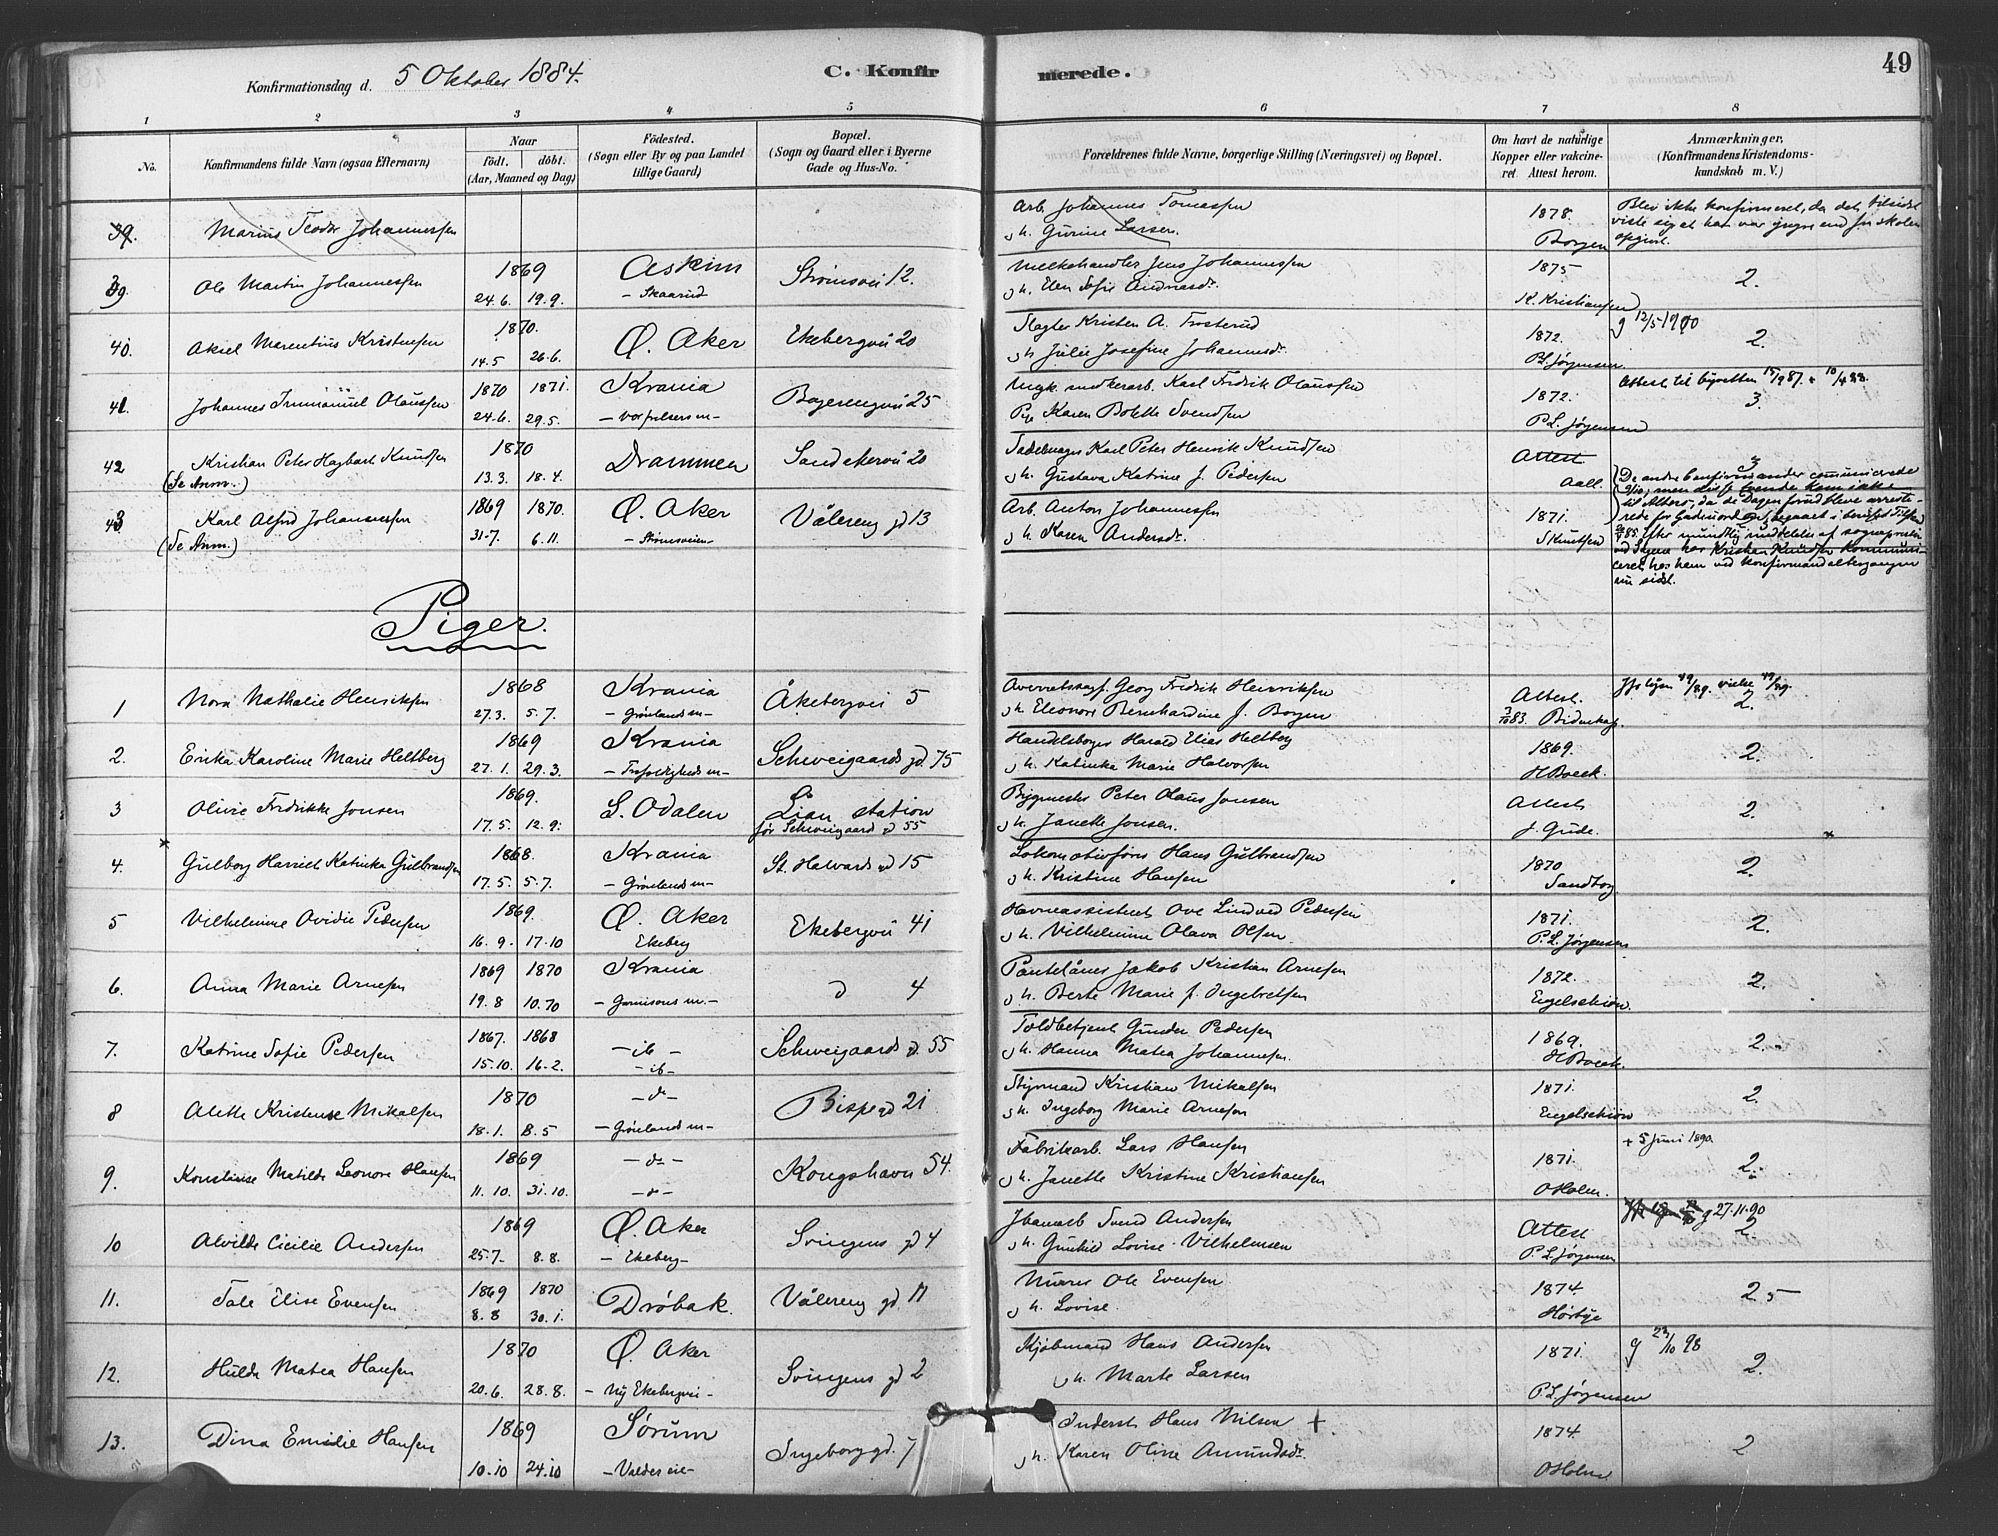 49
Konfirmationsdag d. 5 Oktober 1884.
C. Konfirmerede.
1 2 3 4 5 6 7 8
No.
Konfirmandens fulde Navn (ogsaa Efternavn)
Naar
födt. döbt.
(Aar, Maaned og Dag)
Födested.
(Sogn eller By og paa Landet
tillige Gaard)
Bopæl.
(Sogn og Gaard eller i Byerne
Gade og Hus-No.
Forældrenes fulde Navne, borgerlige Stilling (Næringsvei) og Bopæl.
Om havt de natúrlige
Kopper eller vakcine-
ret Attest herom.
Anmærkninger,
(Konfirmandens Kristendoms-
kundskab m. V.)
39. Marius Teodor Johannessen
Arb. Johannes Tomassen
o h. Gurine Larsen.
1878.
Borgen
Blev ikke konfirmeret, da det tilsidst
viste sig at han var yngre end for skolen
opgivet.
39 Ole Martin Johannessen
1869
24.6. 19.9.
Askim
– Skaarud
Strömsvei 12.
Melkehandler Jens Johannessen
o h. Elen Sofie Andreasdr.
1875
K. Kristiansen
2.
40. Aksel Marentius Kristensen
1870.
14.5 26.6.
Ø. Aker
Ekebergvei 20
Slagter Kristen A. Frosterud
o h. Julie Josefine Johannesdr.
1872.
P.L. Jørgensen
g 12/5 1900
2.
41. Johannes Immanuel Olaussen
1870 1871.
24.6. 29.5.
Krania
– Vorfrelsers m –
Bogerengvei 25
Ungk. Karl Fredrik Olaussen
Pige Karen Bolette Svendsen
1872.
P.L. Jørgensen
3.
42 Kristian Peter Hagbart Knudsen
(Se Anm.)
1870
13.3. 18.4.
Drammen
Sandakervei 20
Sadelmager Karl Peter Henrik Knudsen
o h. Gustava Katrine f. Pedersen
Attest
Aall.
3
43 Karl Alfred Johannessen
(Se Anm.)
1869 1870.
31.7. 6.11.
Ø. Aker
– Strömsveien –
Vålereng gd 13
Arb. Anton Johannessen
o h. Karen Andersdr.
1871.
S Knutsen
De andre konfirmander communicerede
men disse tvende kom ikke
til Alters, da de Dagen forud bleve arreste-
rede for Gademord
Efter mundtlig meddelelse af sognepresten
ved har Kristian Knudsen kommuni-
ceret hos ham ved konfirmandaltergangen
nu sidst.
Piger.
1 Nora Nathalie Henriksen
1868
27.3. 5.7.
Krania
– Grönlands m –
Åkebergvei 5
Georg Fredrik Henriksen
o h. Eleonore Bernhardine f. Borgen
Attest.
3/10 83. Bidenkap.
2.
2. Erika Karoline Marie Heltberg
1869
27.1. 29.3.
Krania
– Trefoldigheds m –
Schweigaards gd. 75
Handelsborger Harald Elias Heltberg
o h. Katinka Marie Halvorsen
1869.
H Boeck.
2.
3 Olivie Fredrikke Jonsen
1869.
17.5. 12.9.
S. Odalen
Lian station
før Schweigaard gd 55
Bygmester Peter Olaus Jonsen
o h. Janette Jonsen.
Attest
J. Gude.
2.
4. Gulborg Harriet Katinka Gulbrandsen
1868.
17.5. 5.7.
Krania
– Grönlands m –
St. Halvards gd 15
Lokomotivförer Hans Gulbrandsen
o h. Kristine Hansen
1870
Sandborg
2.
5 Vilhelmine Ovidie Pedersen
1869.
16.9. 17.10
Ø. Aker
Ekeberg
Ekebergvei 41
Havneassistent Ove Lindved Pedersen
o h. Vilhelmine Olava Olsen.
1871.
P.L. Jørgensen
2.
6. Anna Marie Arnesen
1869 1870
19.8 10.70
Krania
– Garnisons m. –
d 4
Pantelåner Jakob Kristian Arnesen
o h. Berte Marie f. Ingebretsen
1872.
Engelschiøn.
2.
7. Katrine Sofie Pedersen
1867. 1868
15.10. 16.2.
– ib –
– ib –
Schweigaards gd. 55
Toldbetjent Gunder Pedersen
o h. Hanna Matea Johannesen.
1869.
H Boeck.
2.
8 Alette Kristense Mikalsen
1870
18.1. 8.5
– do –
– Grönlands m –
Bispegd 21
Styrmand Kristian Mikalsen
o h. Ingeborg Marie Arnesen
1871.
Engelschiøn
2.
9. Konstanse Matilde Leonore Hansen
1869
11.10. 31.10.
– do –
– do –
Kongshavn 54.
Fabrikarb. Lars Hansen
o h. Janette Kristine Kristiansen
1871.
O Holm.
+ 5 juni 1890.
2.
10 Alvilde Cicilie Andersen
1869
25.7. 8.8.
Ø. Aker
– Ekeberg –
Svingens gd 4
Jbanearb Svend Andersen
o h. Gunhild Lovise Vilhelmsen
Attest
P.L. Jørgensen
g 27.11.90
2.
11. Tale Elise Evensen
1869 1870
8.8 30.1.
Dröbak.
Vålereng gd. 11
Murer Ole Evensen
o h. Lovise.
1874
Hörbye
2 5
12. Hulda Matea Hansen
1870
20.6. 28.8.
Ø. Aker
– Ny Ekebergvei –
Svingens gd 2
Kjöbmand Hans Andersen
o h. Marte Larsen
1871.
P.L. Jørgensen
g 23/10 98
2.
13. Dina Emilie Hansen
1869
10.10 24.10
Sørum
– Valders eie –
Ingeborg gd. 7
Inderst Hans Nilsen +
o h. Karen Oline Amundsdr.
1874.
O Holm
2